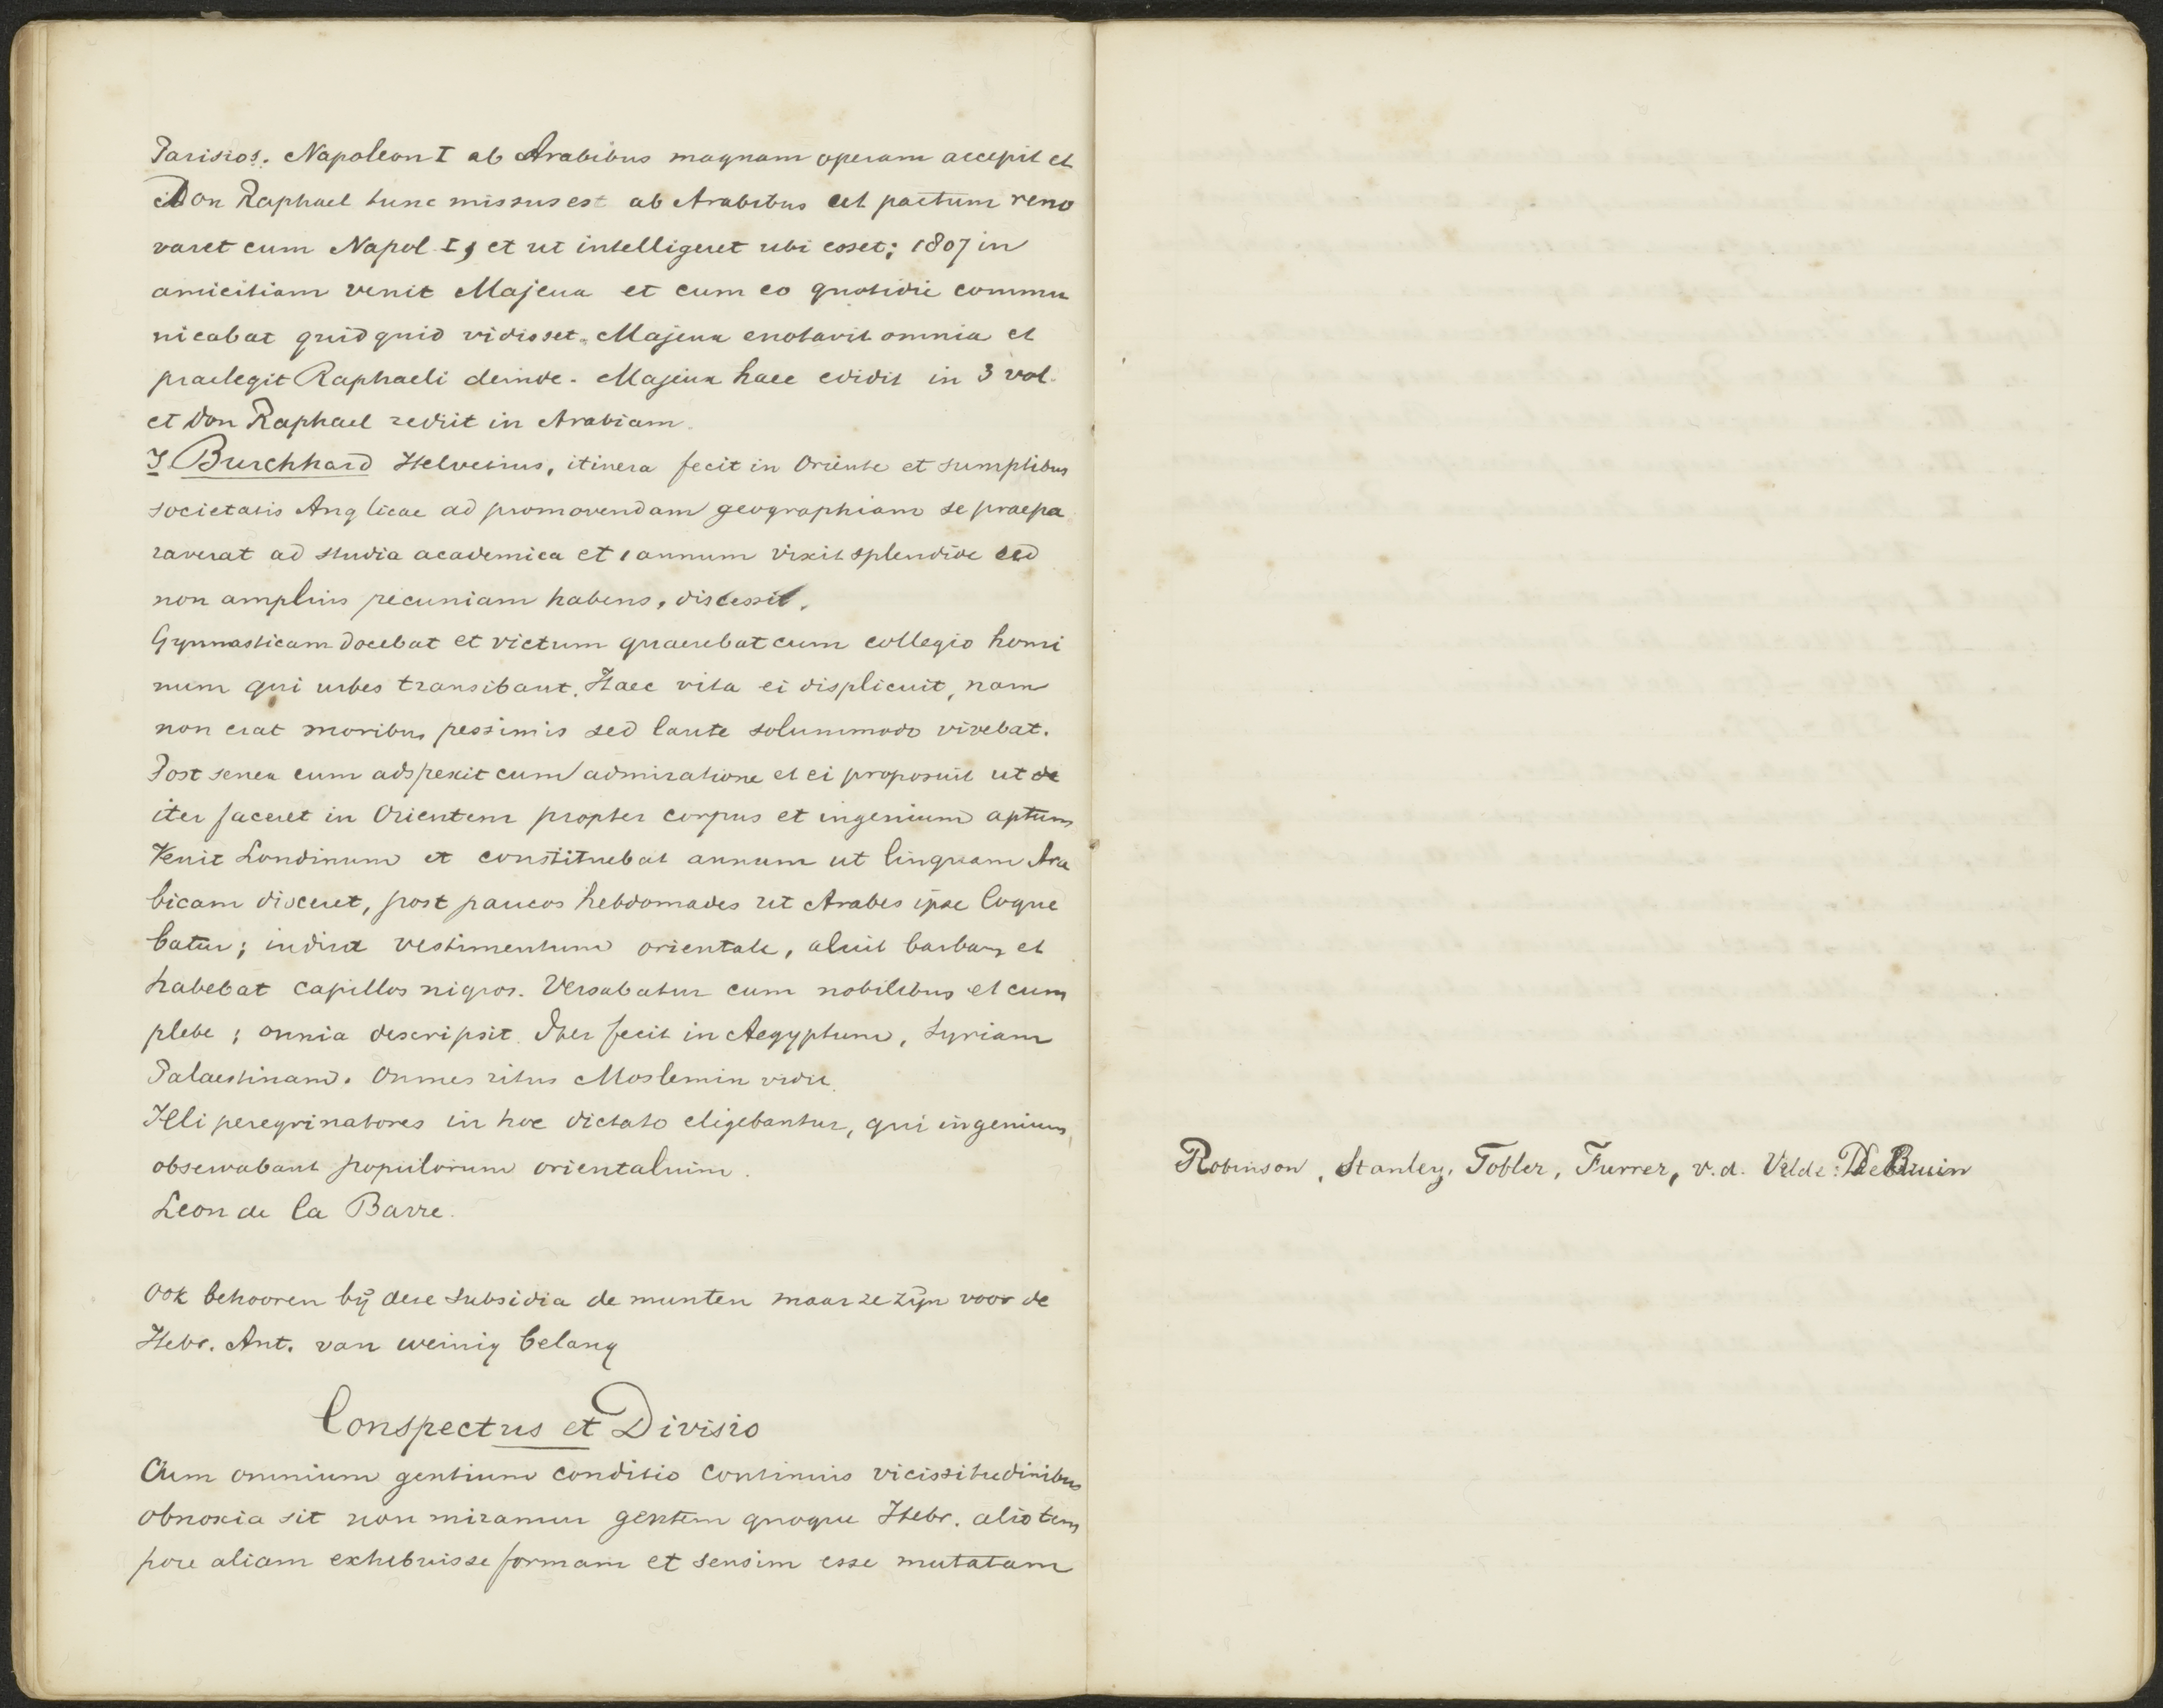 Parisios. Napoleon I ab Arabibus magnam operam accepit et
Don Raphael tunc missus est ab Arabibus ut pactum reno
varet cum Napol I, et ut intelligeret ubi esset; 1807 in
amicitiam venit Majeux et cum eo quotidie commu
nicabat quidquid vidisset. Majeux enotavit omnia et
praelegit Raphaeli deinde. Majeux haec edidit in 3 vol.
et Don Raphael rediit in Arabiam.
J. Burchhard Helvetius, itinera fecit in Oriente et sumptibus
societatis Anglicae ad promovendam geographiam se praepa
raverat ad studia academica et 1 annum vixit splendide sed
non amplius pecuniam habens, discessit.
Gymnasticam docebat et victum quaerebat cum collegio homi
num qui urbes transibant. Haec vita ei displicuit, nam
non erat moribus pessimis sed laute solummodo vivebat.
Post senex eum adspexit cum admiratione et ei proposuit ut
iter faceret in Orientem propter corpus et ingenium aptum
Venit Londinum et constituebat annum ut linguam Ara
bicam disceret, post paucos hebdomades ut Arabes ipse loque
batur; induit vestimentum orientale, aluit barbam et
habebat capillos nigros. Versabatur cum nobilibus et cum
plebe; omnia descripsit. Iter fecit in Aegyptum, Syriam
Palaestinam. Omnes ritus Moslemin vidit.
Illi peregrinatores in hoc dictato eligebantur, qui ingenium
observabant populorum orientalium.
Leon de la Barre.
Ook behooren bij deze subsidia de munten maar ze zijn voor de
Hebr. Ant. van weinig belang
Conspectus et Divisio
Cum omnium gentium conditio continuis vicissitudinibus
obnoxia sit non miramur gentem quoque Hebr. alio tem
pore aliam exhibuisse formam et sensim esse mutatam
Robinson, Stanley, Tobler, Furrer, v.d. Velde. De Bruin